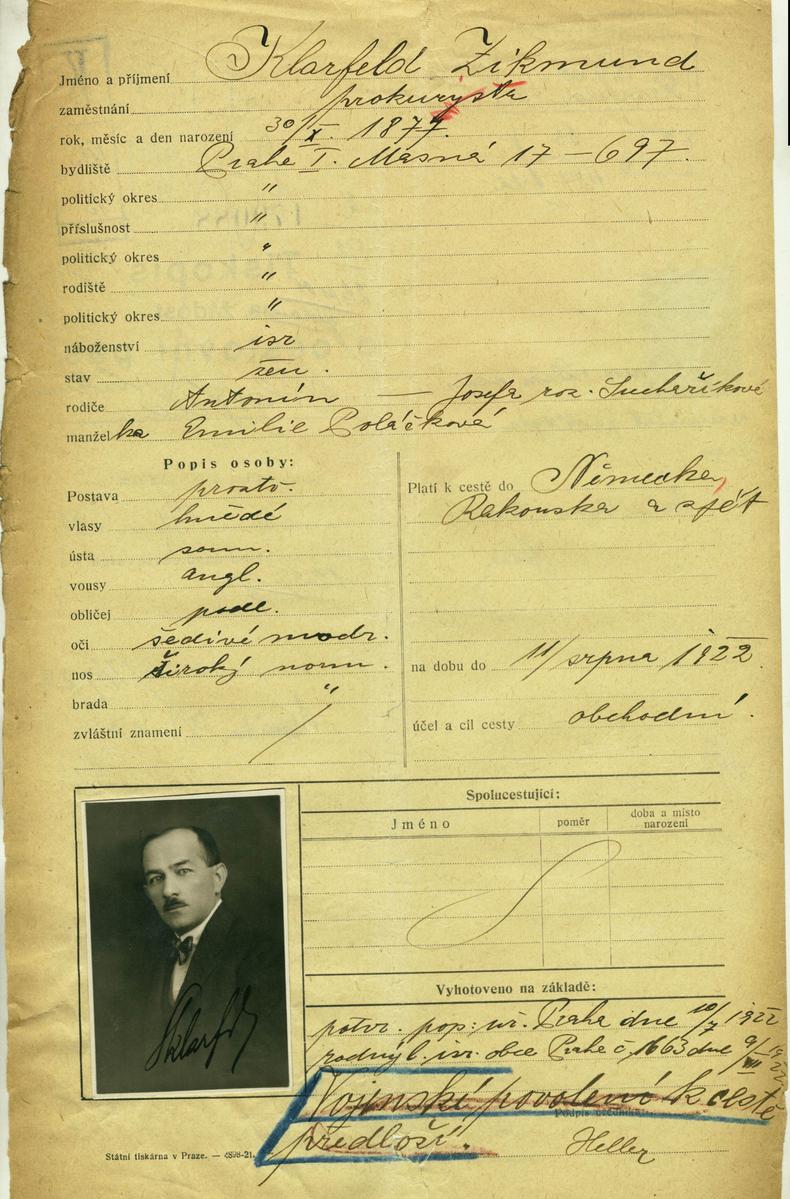 Jméno a příjmení Klarfeld Zikmund
zaměstnání prokurysta
rok, měsíc a den narození 30/X. 1877.
bydliště Praha I. Masná 17 – 697.
politický okres "
příslušnost "
politický okres "
rodiště "
politický okres "
náboženství isr
stav žen.
rodiče Antonín — Josefa roz. Suchaříková
manželka Emilie Poláčková
Popis osoby:
Postava prostř.
vlasy hnědé
ústa soum.
vousy angl.
obličej podl.
oči šedivé modr.
nos široký norm.
brada "
zvláštní znamení /
Platí k cestě do Německa,
Rakouska a zpět
na dobu do 11/srpna 1922.
účel a cíl cesty obchodní.
Spolucestující:
Jméno poměr doba a místo narození
SKlarfeld
Vyhotoveno na základě:
potvr. pop: úř. Praha dne 10/7 1922
rodný l. isr. obce Praha č. 1663 dne 9/VII
Vojenské povolení k cestě
Podpis úředníka:
předloží.
Heller
Státní tiskárna v Praze. — 4898-21.